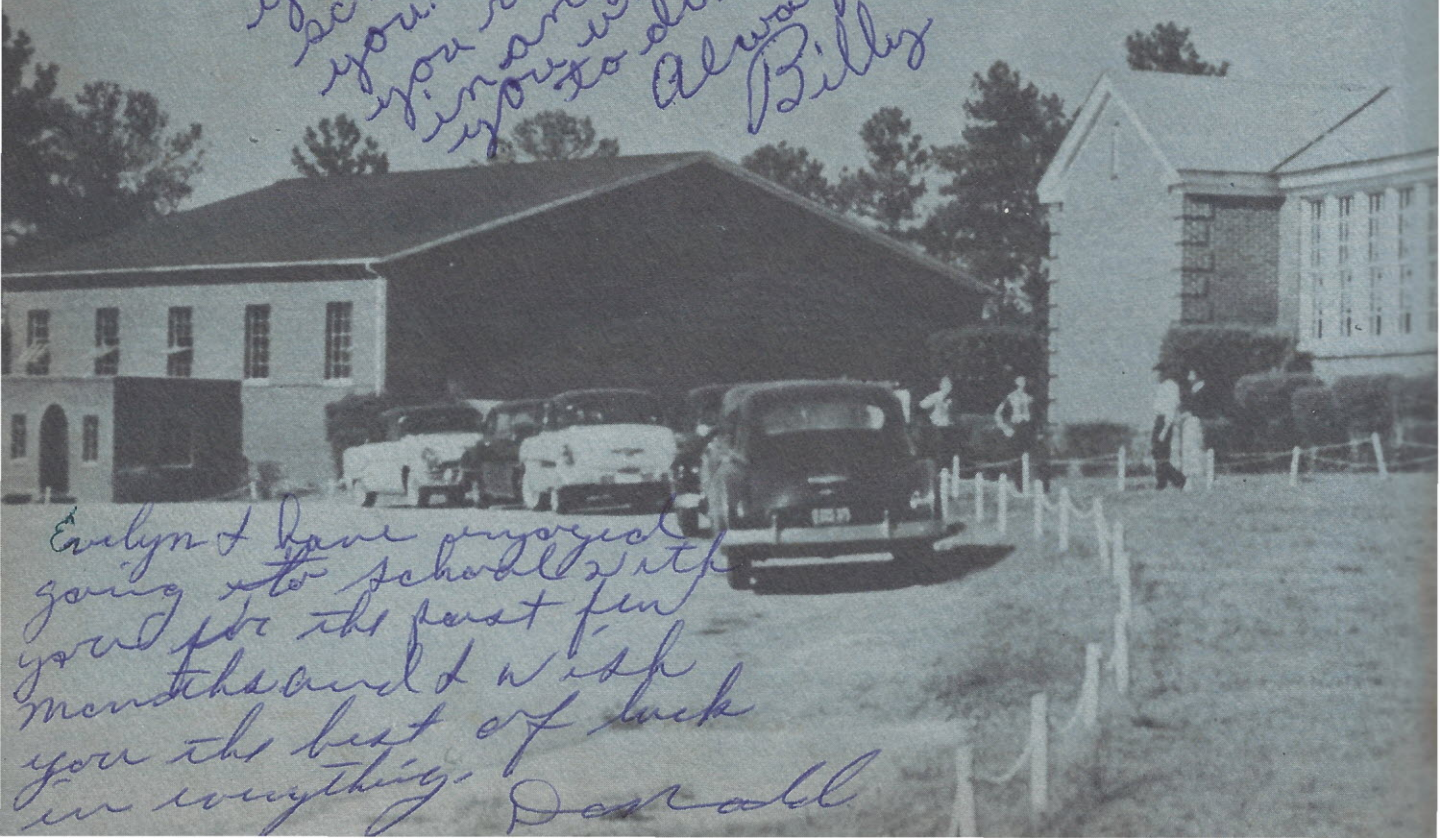 you.
you
in
you
to
Always
Billy
Evelyn I have enjoyed
going to school with
you for the past few
months and I wish
you the best of luck
in everything.
Donald